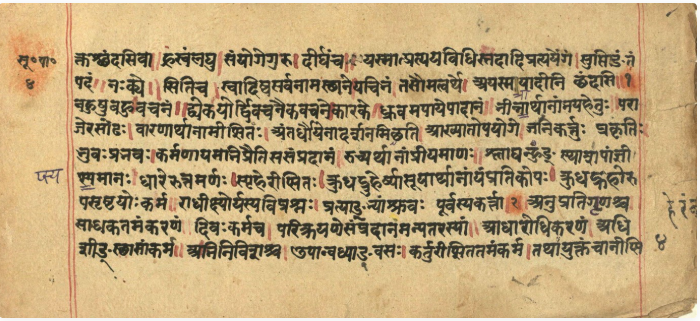 सू॰पा॰
४
क्तश्छंदसिवा। ह्रस्वंलघु। संयोगेगुरु। दीर्घंच। यस्मात्प्रत्ययविधिस्तदादिप्रत्ययेंगं। सुप्तिङंतं
पदं। नःक्ये। सितिच। स्वादिष्वसर्वनामस्थानेयचिभं। तसौमत्वर्थे। अयस्मयादीनि छंदसि १
बहुषुबहुवचनं। द्व्येकयोर्द्विवचनैकवचनेकारके। ध्रुवमपायेपादानं। भीत्रार्थानांभयहेतुः परा
जेरसोढः। वारणार्थानामीप्सितः। अंतर्धौयेनादर्शनमिच्छति आख्यातोपयोगे जनिकर्त्तुः प्रकृतिः
भुवःप्रभवः। कर्मणायमभिप्रैतिससंप्रदानं। रुच्यर्थानांप्रीयमाणः। श्लाघह्नुङ्स्थाशपांज्ञी
प्स्य
प्स्यमानः। धारेरुत्तमर्णः। स्पृहेरीप्सितः। क्रुधद्रुहेर्ष्यासूयार्थानांयंप्रतिकोपः। क्रुधद्रुहोरु
पसृष्टयोःकर्म। राधीक्ष्योर्यस्यविप्रश्नः। प्रत्याङ्भ्यांश्रुवः पूर्वस्यकर्त्ता २ अनुप्रतिगृणश्च
साधकतमंकरणं। दिवःकर्मच। परिक्रयणेसंप्रदानमन्यतरस्यां। आधारोधिकरणं। अधि
शीङ्स्थासांकर्म। अभिनिविशश्च उपान्वध्याङ्वसः कर्तुरीप्सिततमंकर्म। तथायुक्तंचानीप्सि
४